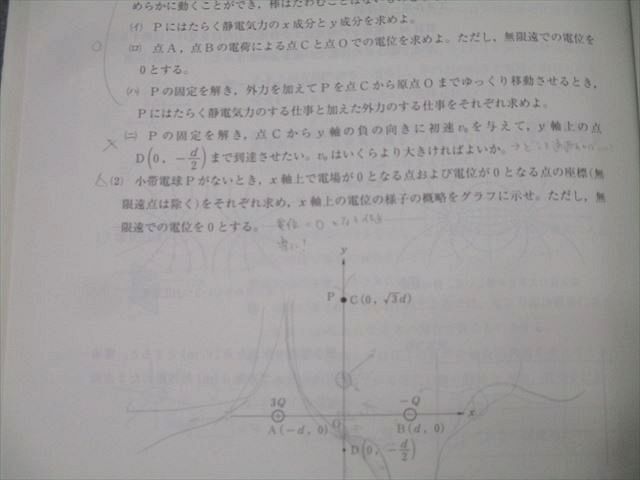 めらかに動くことができ，棒はたわむことはない
(イ) Pにはたらく静電気力のx成分とy成分を求めよ。
(ロ) 点A，点Bの電荷による点Cと点Oでの電位を求めよ。ただし，無限遠での電位を
0とする。
(ハ) Pの固定を解き，外力を加えてPを点Cから原点Oまでゆっくり移動させるとき，
Pにはたらく静電気力のする仕事と加えた外力のする仕事をそれぞれ求めよ。
(ニ) Pの固定を解き，点Cからy軸の負の向きに初速v₀を与えて，y軸上の点
D(0, −d/2)まで到達させたい。v₀はいくらより大きければよいか。
(2) 小帯電球Pがないとき，x軸上で電場が0となる点および電位が0となる点の座標(無
限遠点は除く)をそれぞれ求め，x軸上の電位の様子の概略をグラフに示せ。ただし，無
限遠での電位を0とする。
y
P C(0, √3d)
3Q −Q
x
O
A(−d, 0) B(d, 0)
D(0, −d/2)